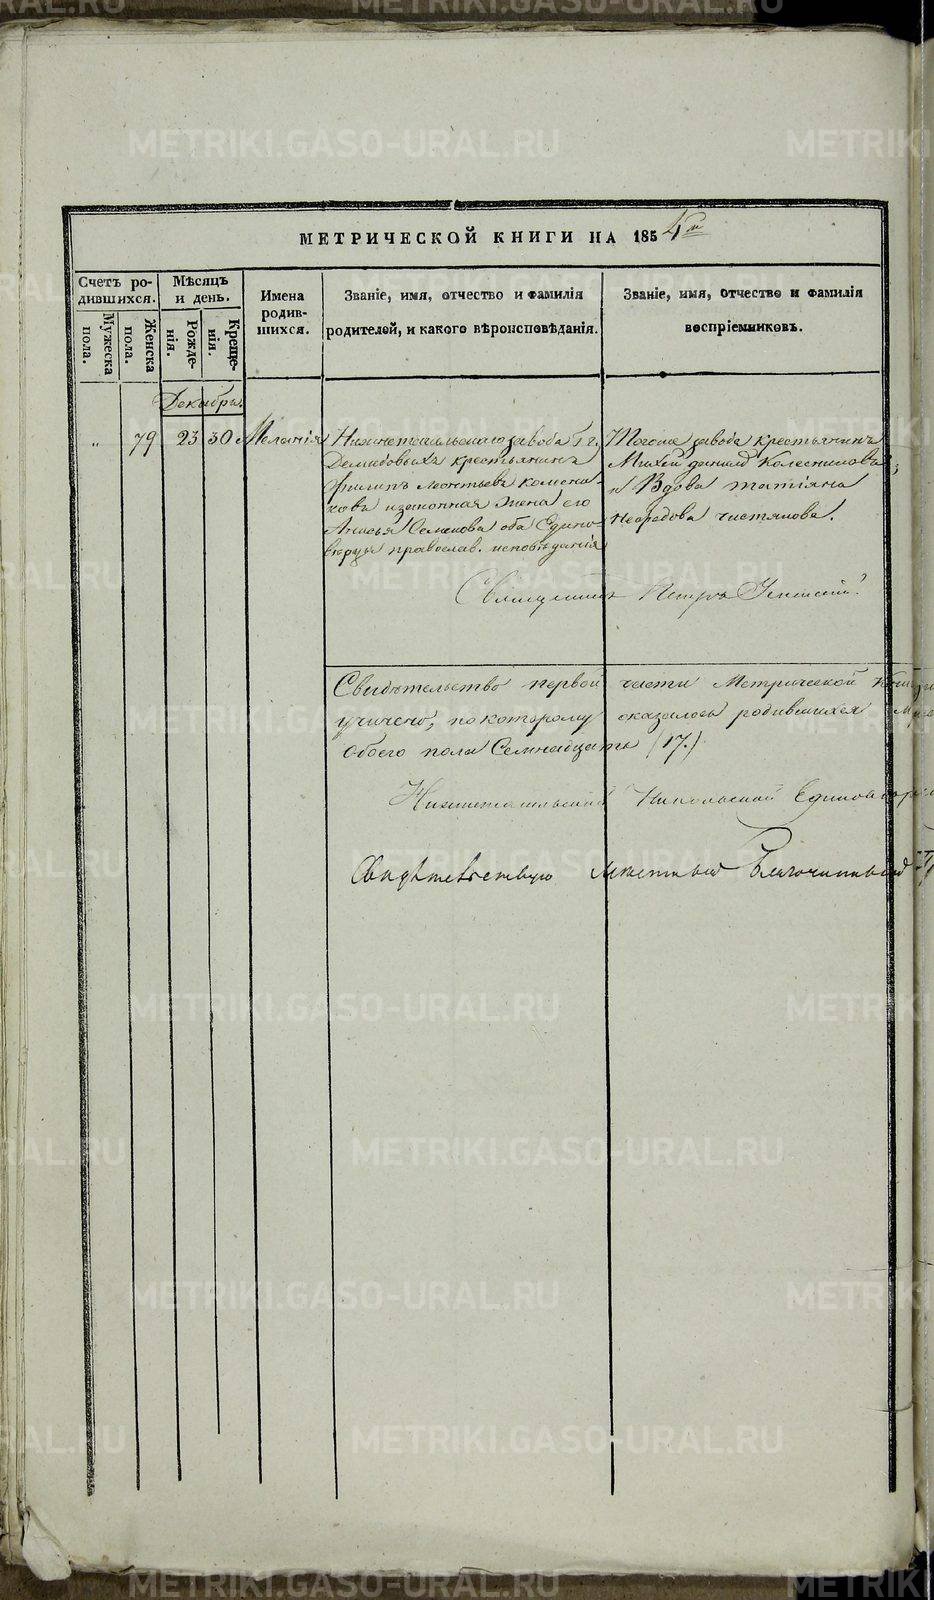 МЕТРИЧЕСКОЙ КНИГИ НА 1854й
Счетъ родившихся.
Мужеска пола.
Женска пола.
Мѣсяцъ и день.
Рожденія.
Крещенія.
Имена родившихся.
Званіе, имя, отчество и фамилія родителей, и какого вѣроисповѣданія.
Званіе, имя, отчество и фамилія воспріемниковъ.
Декабрь.
" 79 23 30 Меланія
Нижнетагильскаго завода Гг.
Демидовыхъ крестьянинъ
Филипъ Леонтьевъ
изаконная жена его
Анисья Семенова оба Едино-
вѣрцы православ. исповѣданія
Тогоже завода крестьянинъ
Колесникова;
и Вдова татіяна
чистякова.
Священникъ Петръ
Свидѣтельство первой части Метрической
учинено, по которому оказалось родившихся
обоего пола Семнадцать (17.)
Нижнетагильской Никольской
Свидѣтельствую мѣстный Благочинный
METRIKI.GASO-URAL.RU